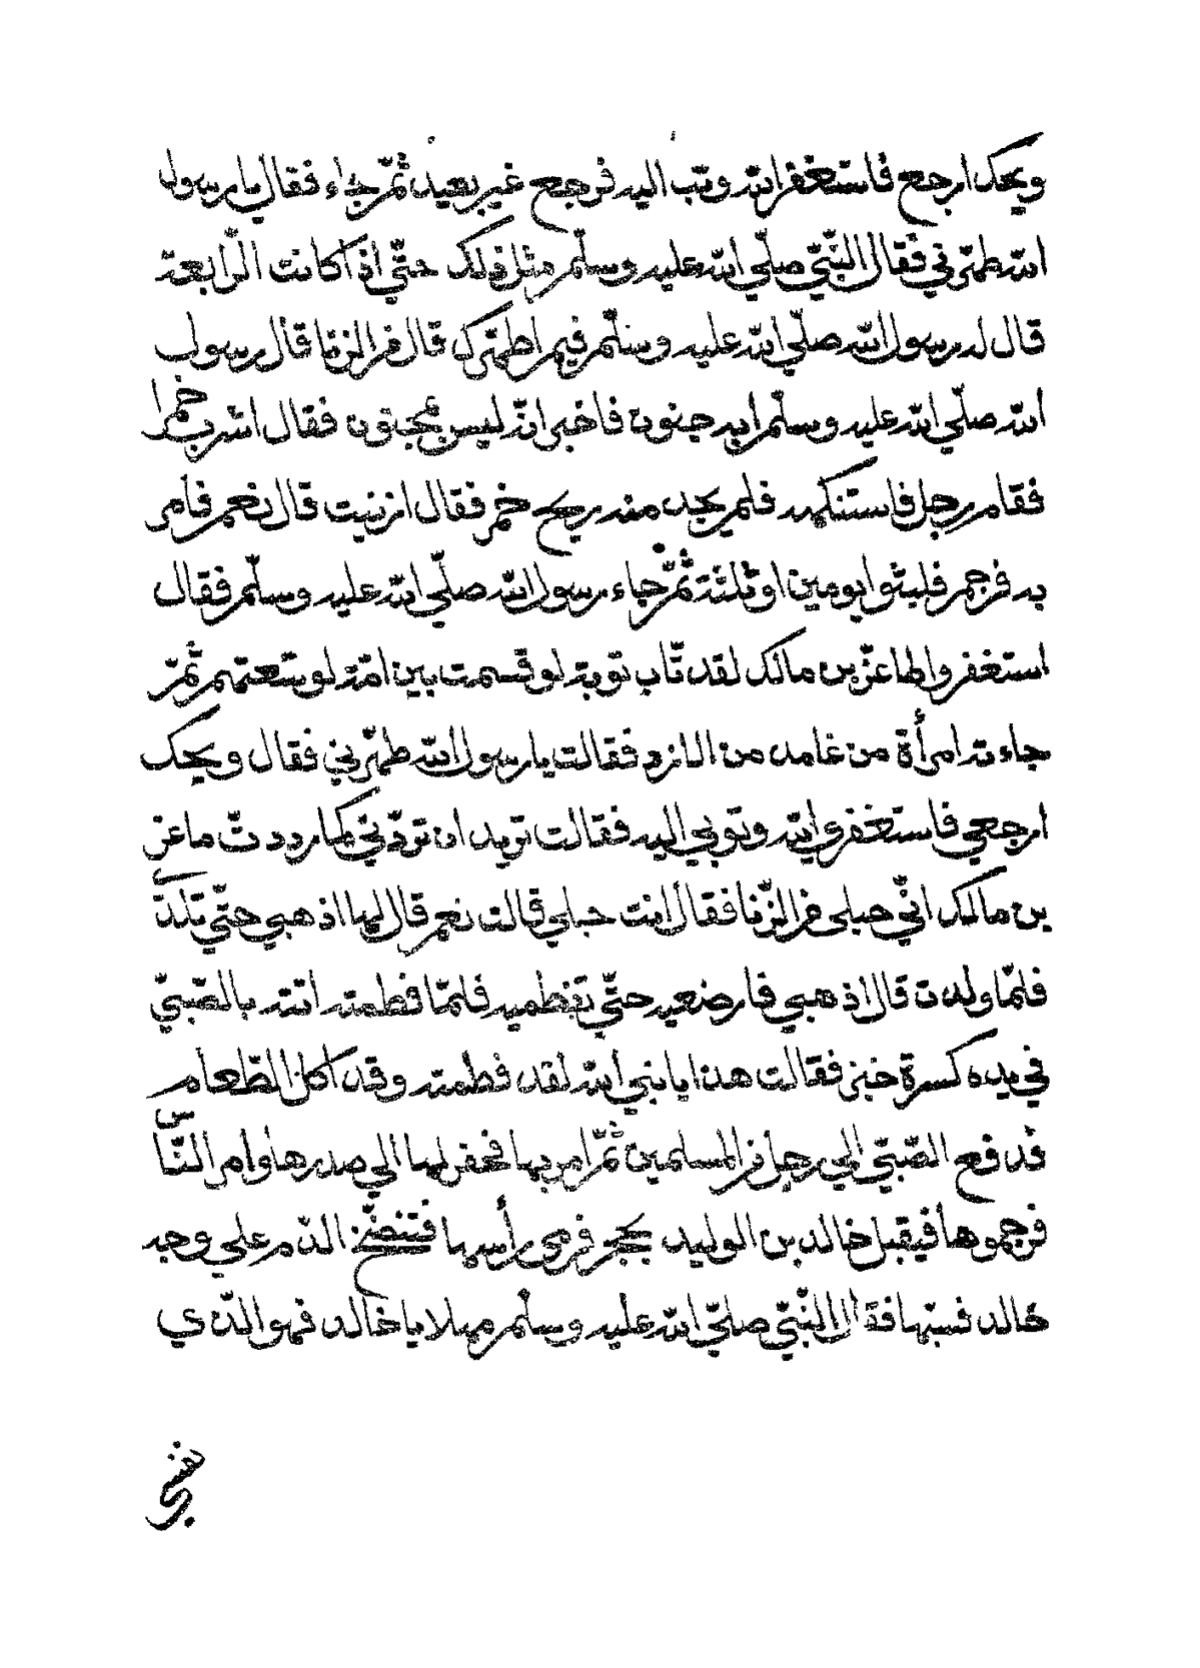 ويحك ارجع فاستغفر الله وتب اليه فرجع غير بعيد ثمّ جاء فقال يا رسول
الله طهّرني فقال النّبيّ صلّي الله عليه وسلّم مثل ذلك حتّي اذا كانت الرّابعة
قال له رسول الله صلّي الله عليه وسلّم فيم اطهّرك قال من الزنا قال رسول
الله صلّي الله عليه وسلّم ابه جنون فاخبر انّه ليس بمجنون فقال اشرب خمرا
فقام رجل فاستنكهه فلم يجد منه ريح خمر فقال ازنيت قال نعم فامر
به فرجم فلبثوا يومين او ثلثة ثمّ جاء رسول الله صلّي الله عليه وسلّم فقال
استغفروا لماعز بن مالك لقد تاب توبة لو قسمت بين امّة لوسعتهم ثمّ
جاءته امرأة من غامد من الازد فقالت يا رسول الله طهّرني فقال ويحك
ارجعي فاستغفري الله وتوبي اليه فقالت تريد ان تردّني كما رددتّ ماعز
بن مالك انّي حبلى من الزّنا فقال انت حبلي قالت نعم قال لها اذهبي حتّي تلدي
فلمّا ولدت قال اذهبي فارضعيه حتّي تفطميه فلمّا فطمته اتته بالصّبيّ
في يده كسرة خبز فقالت هذا يا نبي الله لقد فطمته وقد اكل الطّعام
فدفع الصّبيّ الي رجل من المسلمين ثمّ امر بها فحفر لها الي صدرها وامر النّاس
فرجموها فيقبل خالد بن الوليد بحجر فرمى رأسها فتنضّخ الدّم علي وجه
خالد فسبّها فقال النّبيّ صلّي الله عليه وسلّم مهلا يا خالد فهو الّذي
نفسي